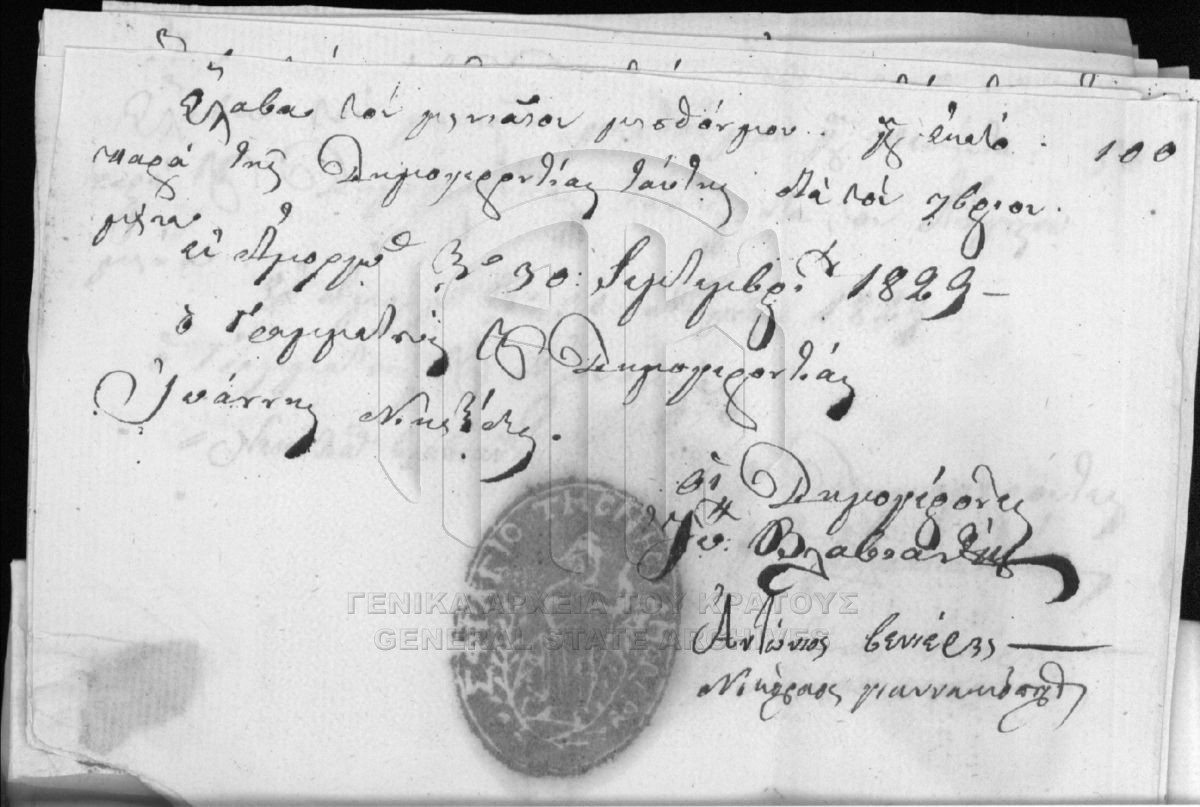 Ἔλαβα τὸν μηνιαῖον μισθόν μου. γρ ἑκατό. 100
παρὰ τῆς Δημογεροντίας ταύτης διὰ τὸν 7βριον
μῆνα
ἐν Ἀμοργῷ 30: Σεπτεμβρ. 1829
ὁ Γραμματεὺς τῆς Δημογεροντίας
Ἰωάννης
οἱ Δημογέροντες
Ἰω. Βλαβιανὸς
Ἀντώνιος βενιέρης
Νικόλαος γιαννακόπουλος
ΓΕΝΙΚΑ ΑΡΧΕΙΑ ΤΟΥ ΚΡΑΤΟΥΣ
GENERAL STATE ARCHIVES